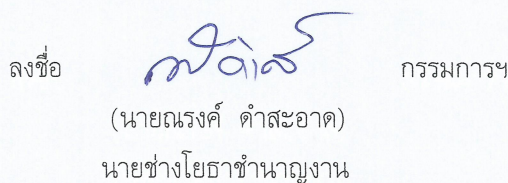 ลงชื่อ กรรมการฯ
(นายณรงค์ ดำสะอาด)
นายช่างโยธาชำนาญงาน